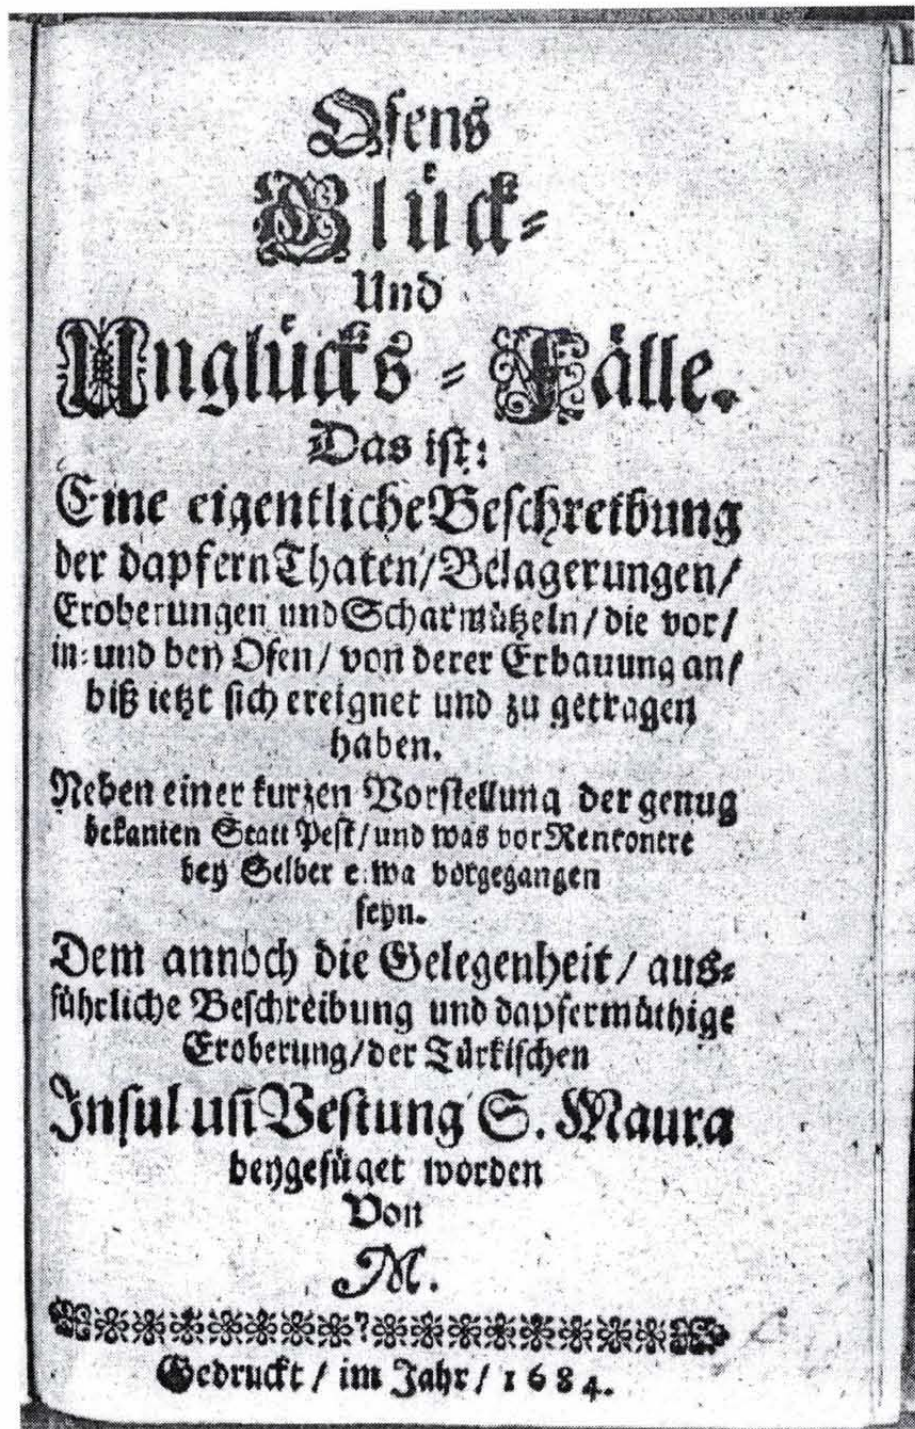 Ofens
Glück-
Und
Unglücks-Fälle.
Das ist:
Eine eigentliche Beschreibung
der dapfern Thaten/Belagerungen/
Eroberungen und Scharmützeln/die vor/
in: und bey Ofen/von derer Erbauung an/
biß ietzt sich ereignet und zu getragen
haben.
Neben einer kurzen Vorstellung der genug
bekanten Statt Pest/und was vor Rencontre
bey Selber etwa vorgegangen
seyn.
Dem annoch die Gelegenheit/aus-
führliche Beschreibung und dapfermüthige
Eroberung/der Türkischen
Insul uñ Vestung S. Maura
beygefüget worden
Von
M.
Gedruckt/im Jahr/1684.